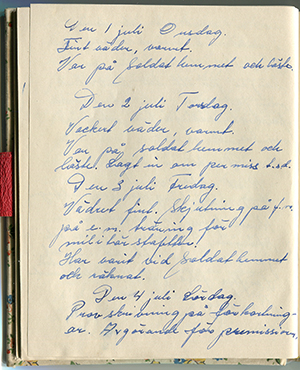 Den 1 juli Onsdag.
Fint väder, varmt.
Var på soldathemmet och läste.
Den 2 juli Torsdag.
Vackert väder, varmt.
Var på soldathemmet och
läste. Lagt in om permiss
Den 3 juli Fredag.
Vädret fint. Skjutning på f.m.
på e.m. träning för
militärstafetten!
Har varit vid Soldathemmet
och räknat.
Den 4 juli Lördag.
Provskrivning på förkortning-
ar. Avgörande för permission.